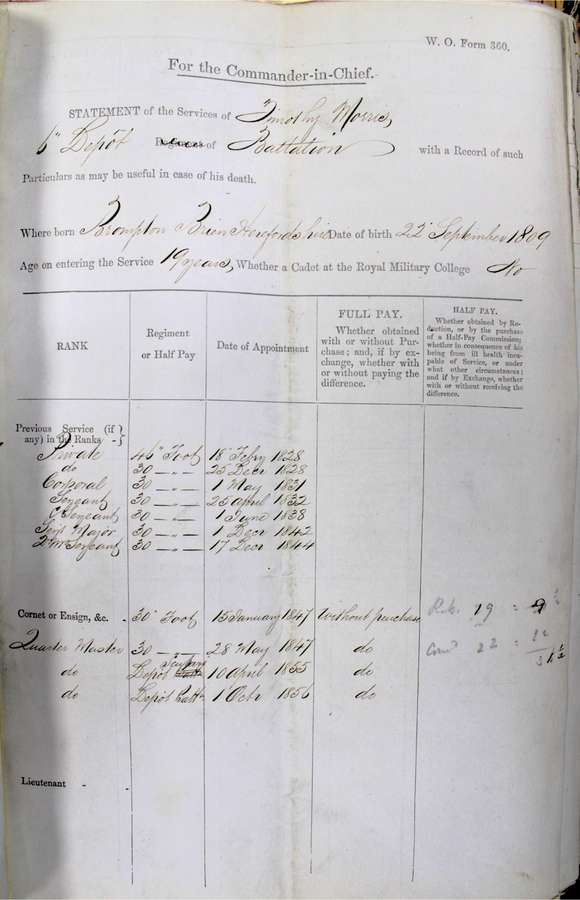 W. O. Form 360.
For the Commander-in-Chief.
STATEMENT of the Services of Timothy Morris,
6th Depôt of Battalion with a Record of such
Particulars as may be useful in case of his death.
Where born Brompton Brian Herefordshire Date of birth 22d September 1809
Age on entering the Service 19 years, Whether a Cadet at the Royal Military College No
RANK
Regiment or Half Pay
Date of Appointment
FULL PAY.
Whether obtained
with or without Pur-
chase; and, if by ex-
change, whether with
or without paying the
difference.
HALF PAY.
Whether obtained by Re-
duction, or by the purchase
of a Half-Pay Commission;
whether in consequence of his
being from ill health inca-
pable of Service, or under
what other circumstances;
and if by Exchange, whether
with or without receiving the
difference.
Previous Service (if
any) in the Ranks -
Private 46th Foot 18 Febry 1828
do 30 -"- 25 Decr 1828
Corporal 30 -"- 1 May 1831
Sergeant 30 -"- 25 April 1832
C Sergeant 30 -"- 1 June 1838
Serjt Major 30 -"- 1 Decr 1842
Q M Sergeant 30 -"- 17 Decr 1844
Cornet or Ensign, &c. - 30th Foot 15 January 1847 Without purchase 19 = 9½
Quarter Master 30 -"- 28 May 1847 do 22 =
do Depôt 10 April 1855 do
do Depôt Battn 1 Octr 1856 do
Lieutenant -